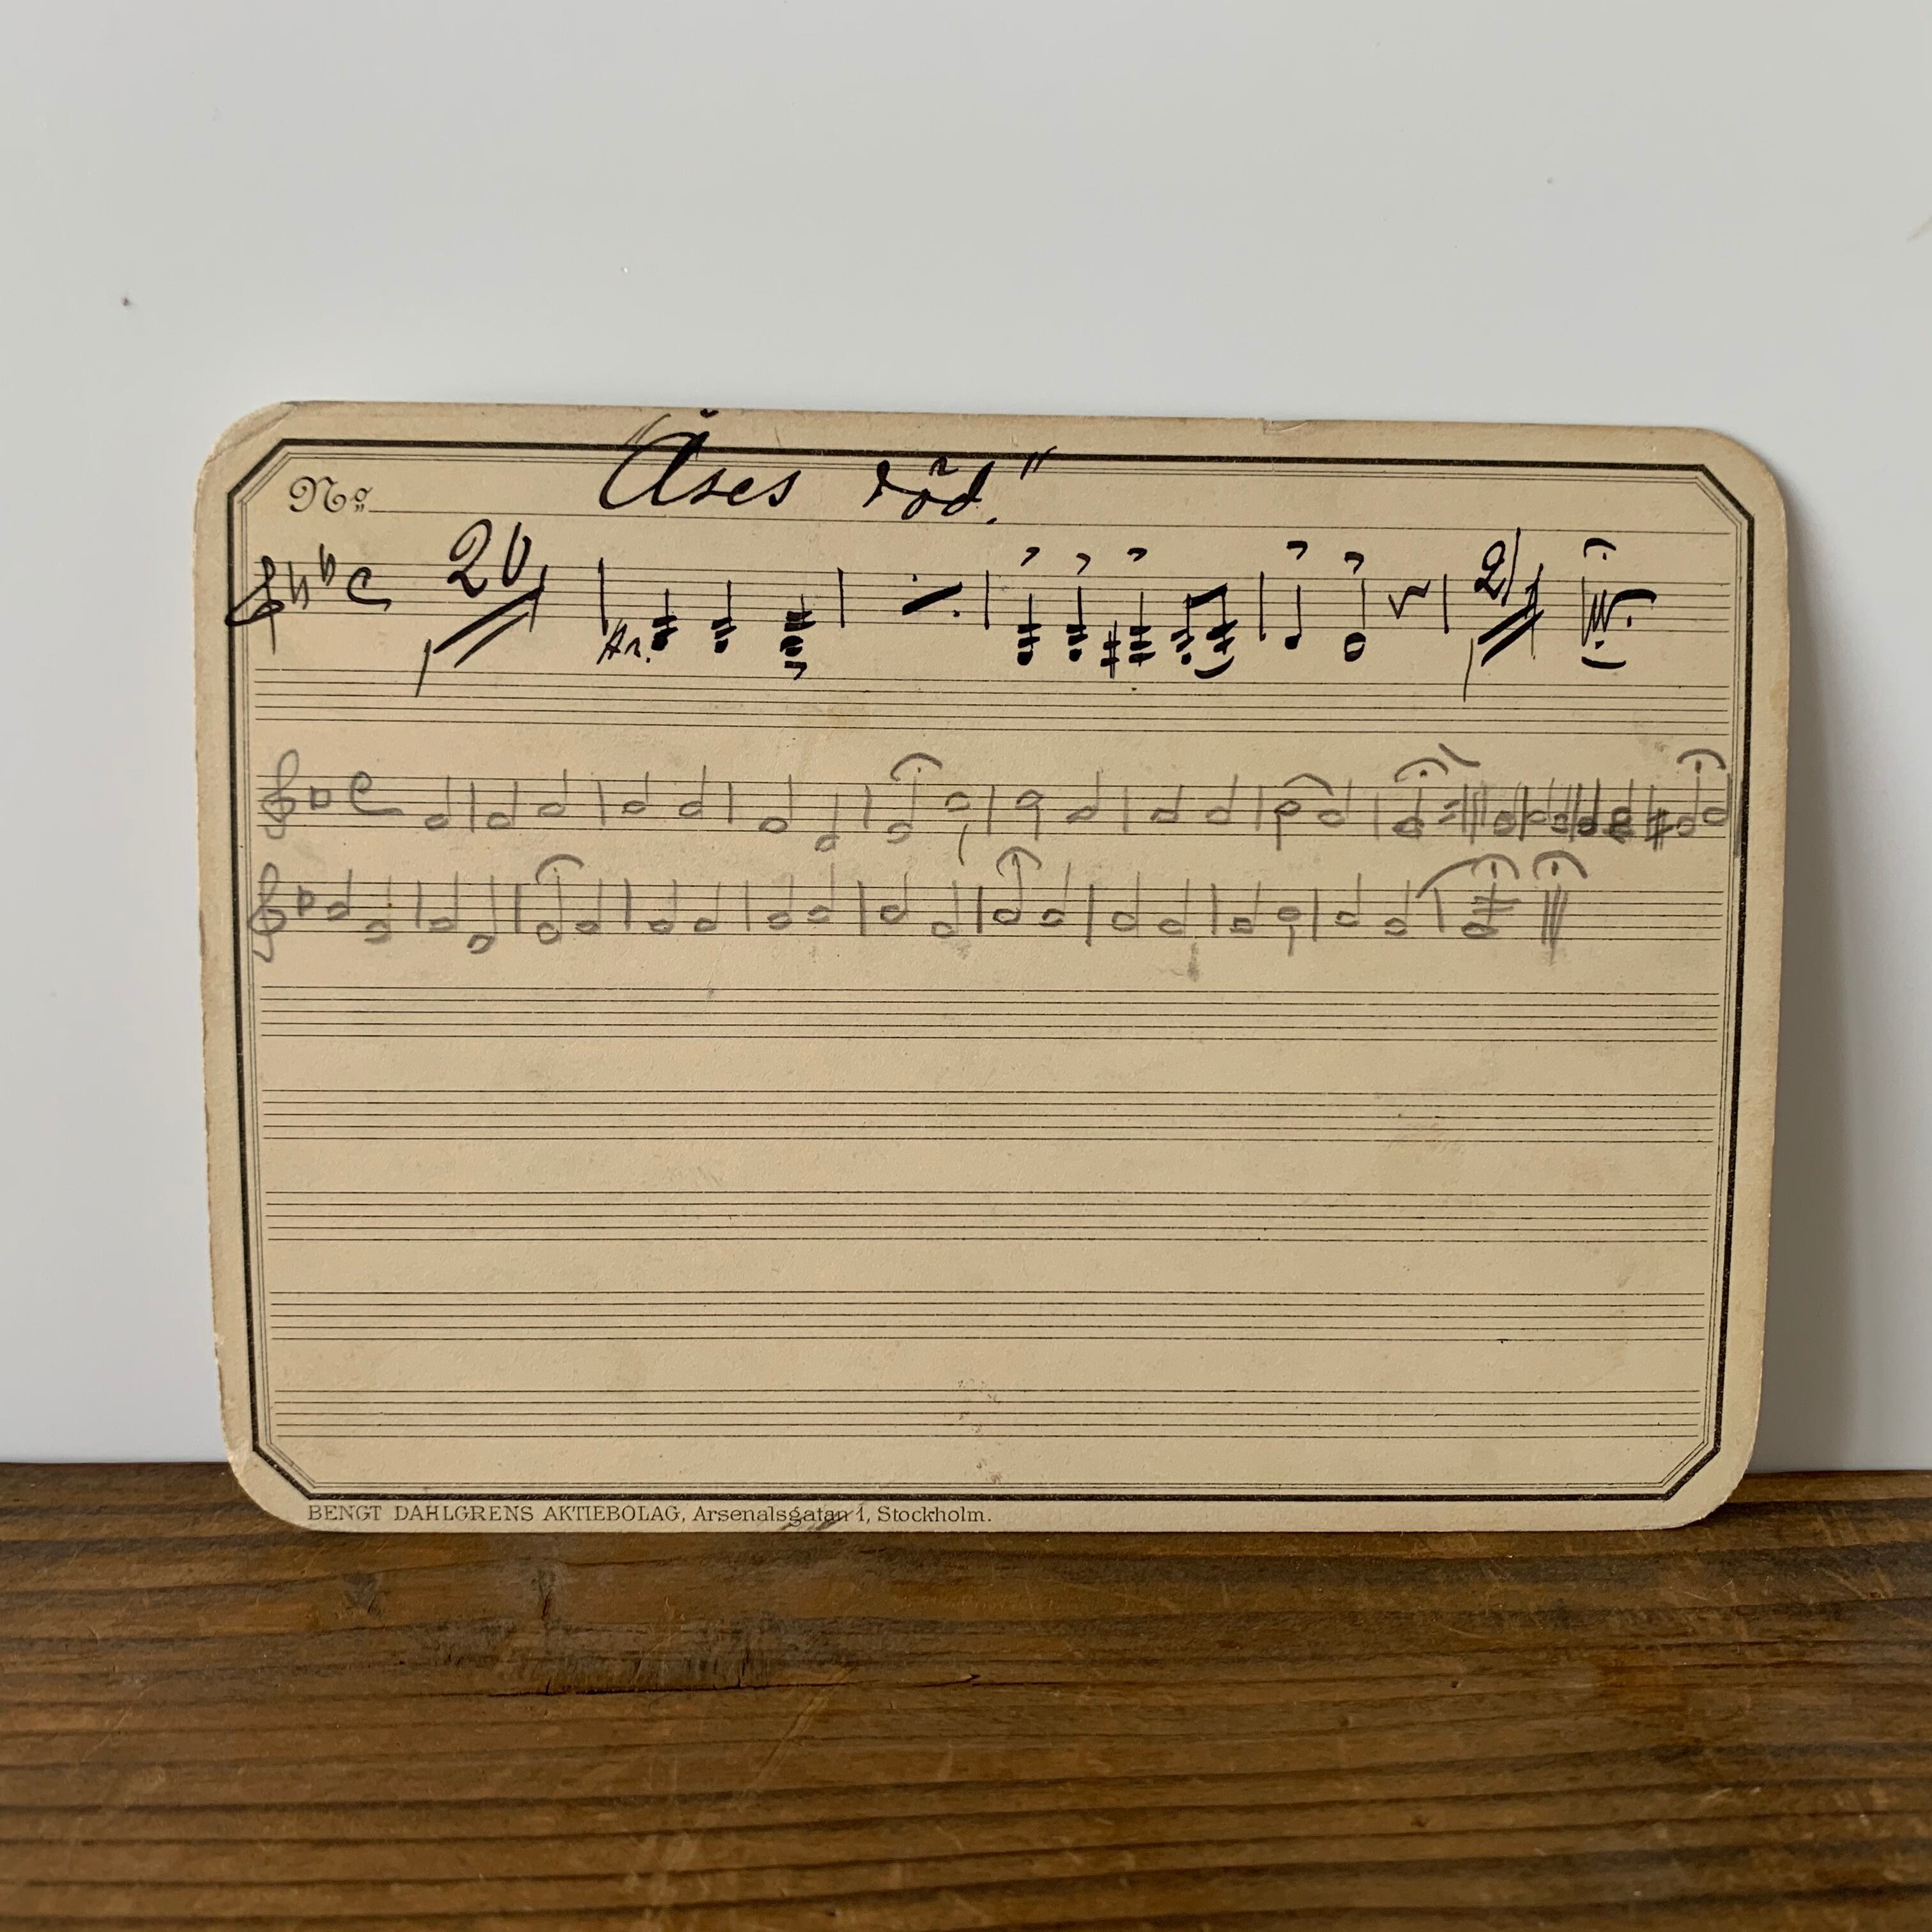 Nº "Åses död."
20
2
BENGT DAHLGRENS AKTIEBOLAG, Arsenalsgatan 1, Stockholm.